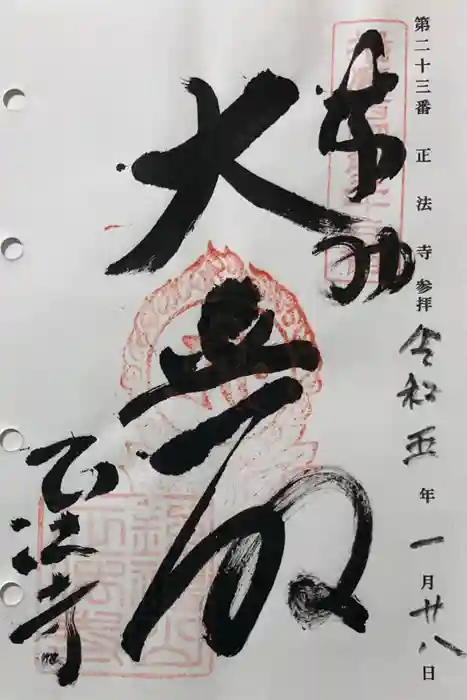 第二十三番 正法寺 参拝 令和五年 一月廿八日
奉拝
大悲
正法寺